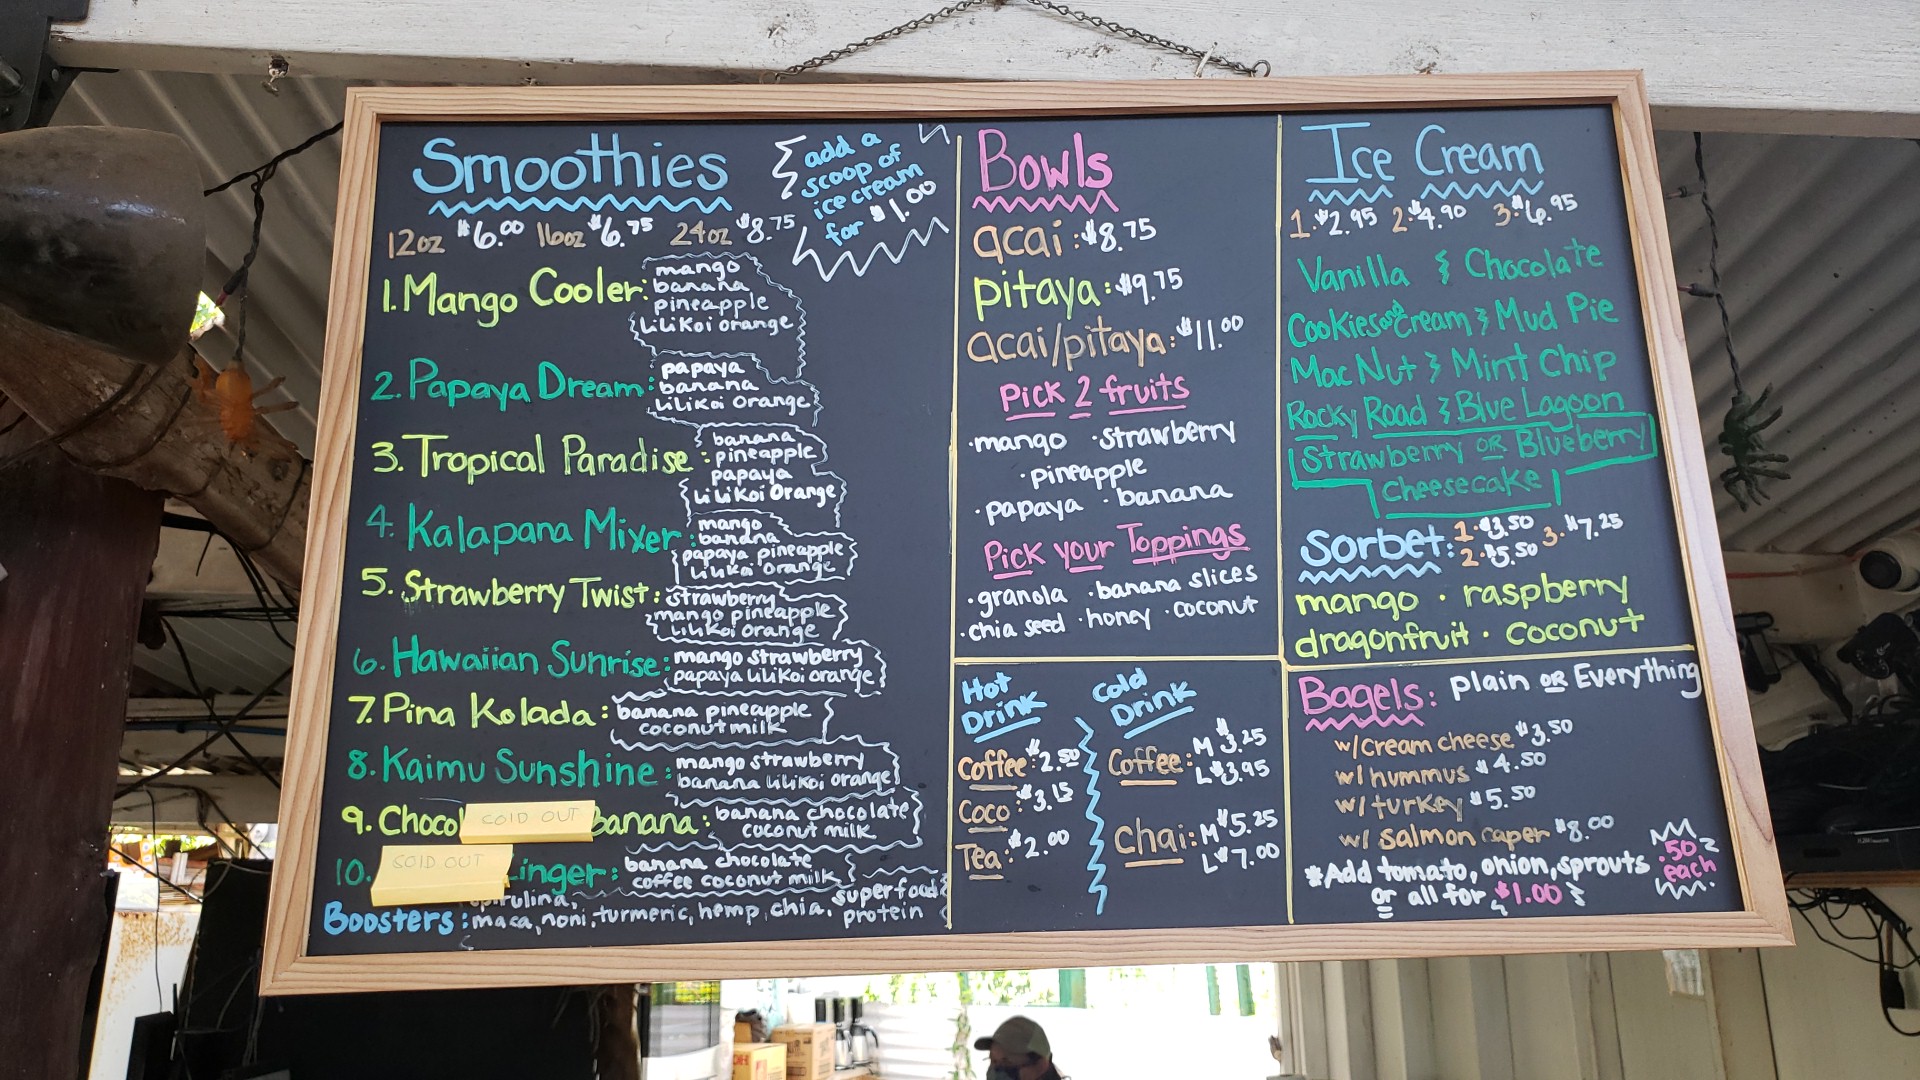 Smoothies
add a
scoop of
ice cream
for $1.00
12oz $6.00 16oz $6.75 24oz $8.75
1. Mango Cooler: mango
banana
pineapple
Lilikoi orange
2. Papaya Dream: papaya
banana
Lilikoi Orange
3. Tropical Paradise: banana
pineapple
papaya
Lilikoi Orange
4. Kalapana Mixer: mango
banana
papaya pineapple
Lilikoi Orange
5. Strawberry Twist: strawberry
mango pineapple
Lilikoi orange
6. Hawaiian Sunrise: mango strawberry
papaya Lilikoi orange
7. Pina Kolada: banana pineapple
coconut milk
8. Kaimu Sunshine: mango strawberry
banana Lilikoi orange
9. Chocol SOLD OUT Banana: banana chocolate
coconut milk
10. SOLD OUT Linger: banana chocolate
coffee coconut milk
Boosters: spirulina, superfood
maca, noni, turmeric, hemp, chia, protein
Bowls
acai: $8.75
pitaya: $9.75
acai/pitaya: $11.00
Pick 2 fruits
·mango ·strawberry
·pineapple
·papaya ·banana
Pick your Toppings
·granola ·banana slices
·chia seed ·honey ·coconut
Hot
Drink
Coffee: $2.50
Coco: $3.15
Tea: $2.00
Cold
Drink
Coffee: M $3.25
L $3.95
Chai: M $5.25
L $7.00
Ice Cream
1. $2.95 2. $4.90 3. $6.95
Vanilla & Chocolate
Cookies and Cream & Mud Pie
Mac Nut & Mint Chip
Rocky Road & Blue Lagoon
Strawberry OR Blueberry
Cheesecake
Sorbet: 1. $3.50 3. $7.25
2. $5.50
mango · raspberry
dragonfruit · coconut
Bagels: plain OR Everything
w/cream cheese $3.50
w/ hummus $4.50
w/ turkey $5.50
w/ salmon caper $8.00
*Add tomato, onion, sprouts .50 each
or all for $1.00